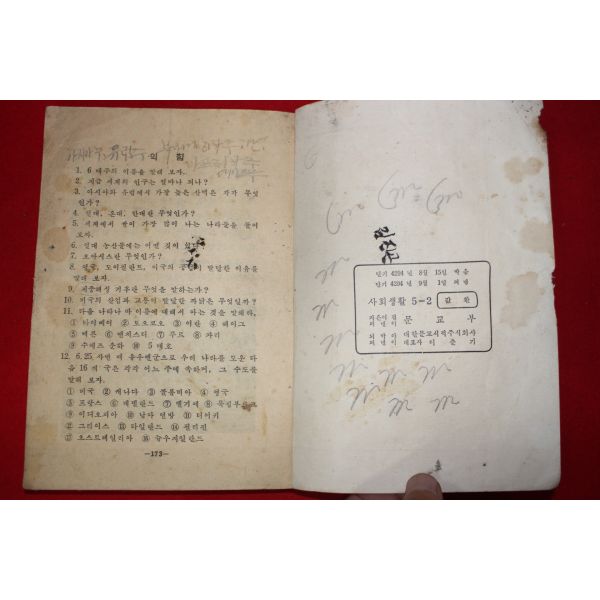 익 힘
1. 6 대주의 이름을 말해 보자.
2. 지금 세계의 인구는 얼마나 되나?
3. 아시아와 유럽에서 가장 높은 산맥은 각각 무엇
인가?
4. 열대, 온대, 한대란 무엇인가?
5. 세계에서 쌀이 가장 많이 나는 나라들을 들어
보자.
6. 열대 농산물에는 어떤 것이 있나?
7. 오아시스란 무엇인가?
8. 영국, 도이칠란트, 미국의 공업이 발달한 이유를
말해 보자.
9. 지중해성 기후란 무엇을 말하는가?
10. 미국의 산업과 교통이 발달한 까닭은 무엇일까?
11. 다음 나라나 땅 이름에 대해서 아는 것을 말해라.
① 타이페이 ② 도오쿄오 ③ 이란 ④ 헤이그
⑤ 베른 ⑥ 맨치스터 ⑦ 루르 ⑧ 파리
⑨ 수에즈 운하 ⑩ 5 대호
12. 6.25 사변 때 유우엔군으로 우리 나라를 도운 다
음 16 개 국은 각각 어느 주에 속하며, 그 수도를
말해 보자.
① 미국 ② 캐나다 ③ 콜롬비아 ④ 영국
⑤ 프랑스 ⑥ 네델란드 ⑦ 벨기에 ⑧ 룩셈부르크
⑨ 이디오피아 ⑩ 남아 연방 ⑪ 터어키
⑫ 그리이스 ⑬ 타일란드 ⑭ 필리핀
⑮ 오스트레일리아 ⑯ 뉴우지일란드
—173—
단기 4294 년 8월 15일 박음
단기 4294 년 9월 1일 펴냄
사회생활 5-2 값 환
지은이 겸
펴낸이 문 교 부